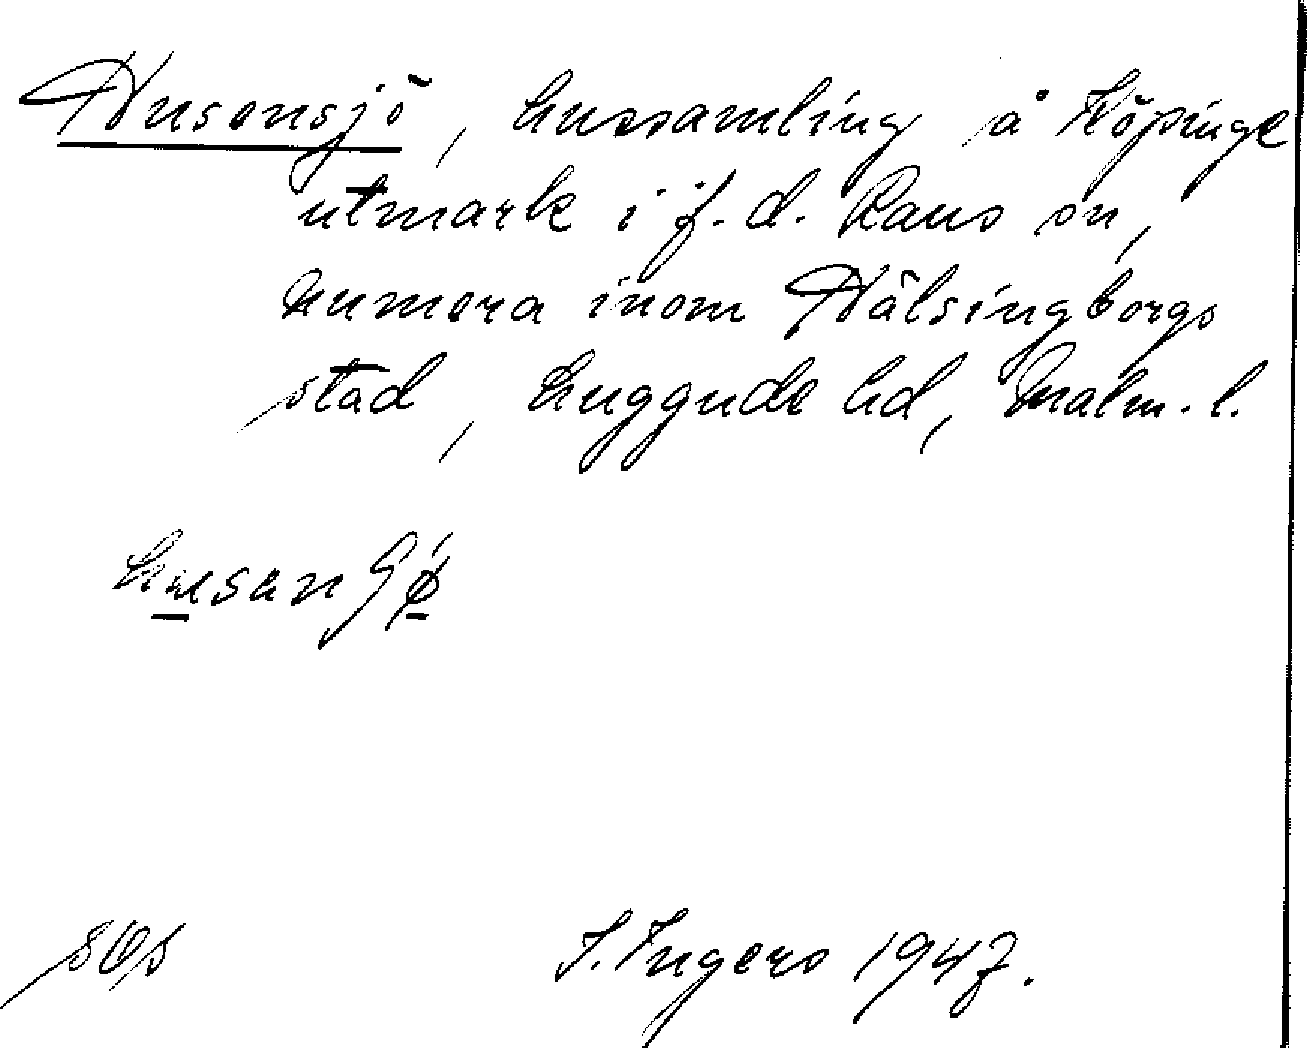 Husensjö, hussamling å Köpinge
utmark i f.d. Raus sn,
numera inom Hälsingborgs
stad, Luggude hd, Malm. l.
I. Ingers 1947.